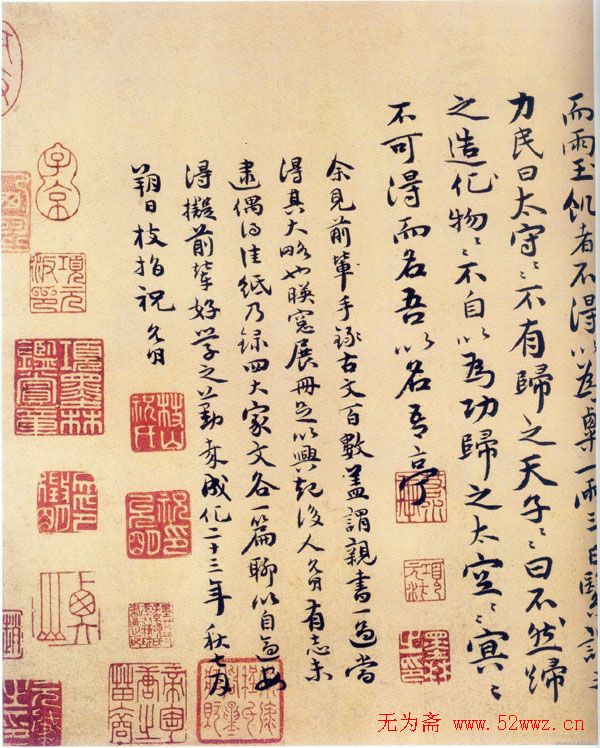 而雨玉飢者不得以為粟一雨三日
力民曰太守〻不有歸之天子〻曰不然歸
之造化物〻不自以為功歸之太空〻冥〻
不可得而名吾以名吾亭
余見前輩手錄古文百數蓋謂親書一過當
得其大略也暎窓展冊足以興起後人允明有志未
逮偶得佳紙乃録四大家文各一篇聊以自
得擬前輩好学之勤成化二十三年秋七月
朔日枝指祝允明
子京
項元汴印
項墨林鑑賞章
枝山
祝允明印
无为斋 www.52wwz.cn